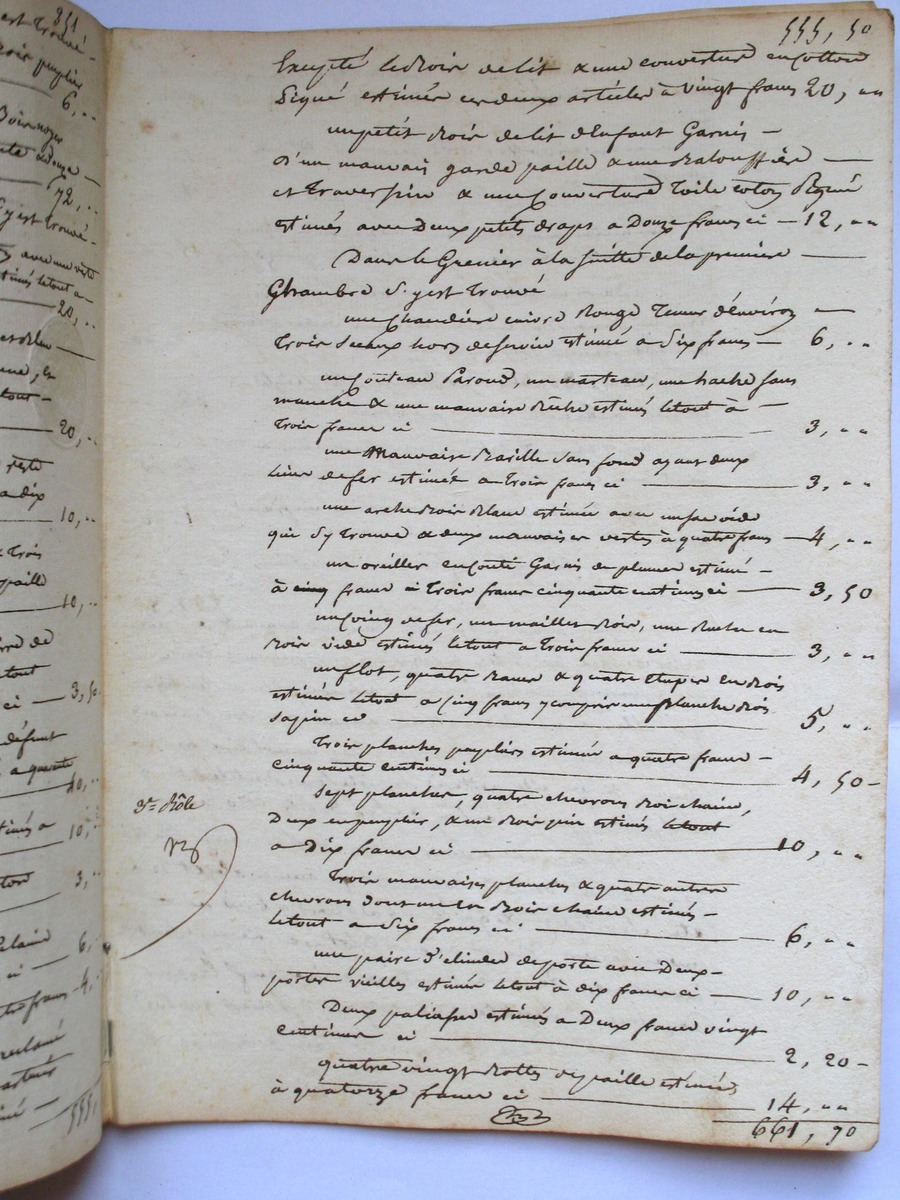 351
est Trouvé
6, "
72, "
s'y est Trouvé
avec une
timés letout a
20, "
20, "
reste
a dix
10, "
x trois
paille
10, "
letout
ci — 3, 50
défunt
a quarante
40, "
timés a 10, "
3, "
6, "
ci —
quatre francs — 4, "
reclamé
555,
555, 50
Excepté le Bois de lit & une couverture en Cotton
Piqué estimée ces deux articles à vingt francs 20, "
un petit Bois de lit d'Enfant Garnis —
d'un mauvais garde paille & une Baloussière —
et Traversin & une Couverture Toile coton Piqué
estimés avec Deux petits draps a Douze francs ci — 12, "
Dans le Grenier à la suitte de la première —
Chambre S'y est Trouvé
une Chaudière cuivre Rouge Teneur d'Environ —
Trois Seaux hors de service estimée a Six francs — 6, "
un Couteau Paroud, un marteau, une hache sans
manche & une mauvaise Bûche estimés letout à —
Trois francs ci — 3, "
une Mauvaise Baville sans fond ayant deux
liens de fer estimée a Trois francs ci — 3, "
une arche Bois Blanc estimée avec un sac vide
qui S'y Trouve & deux mauvaises vestes à quatre francs — 4, "
un oreiller en Couti Garnis de plumes estimé —
à cinq francs a Trois francs cinquante centimes ci — 3, 50
un Coing de fer, un maillet Bois, une Ruche en
Bois vide estimés letout a Trois francs ci — 3, "
un flot, quatre Bancs & quatre etuper en Bois
estimée letout a Cinq francs y compris une planche Bois
Sapin ci — 5, "
Trois planches peupliers estimée a quatre francs —
cinquante centimes ci — 4, 50 -
Sept planches, quatre chevrons Boi chaine,
Deux en peuplier, & un Bois pin estimés letout
a Dix francs ci — 10, "
3e Rôle
Trois mauvaises planches & quatre autres
chevrons dont un en Bois chaine estimés —
letout a Six francs ci — 6, "
une paire d'elindes de porte avec Deux —
portes vieilles estimée letout à dix francs ci — 10, "
Deux paliasses estimés a Deux francs vingt
centimes ci — 2, 20 -
quatre vingt Bottes de paille estimées
à quatorze francs ci — 14, "
661, 70